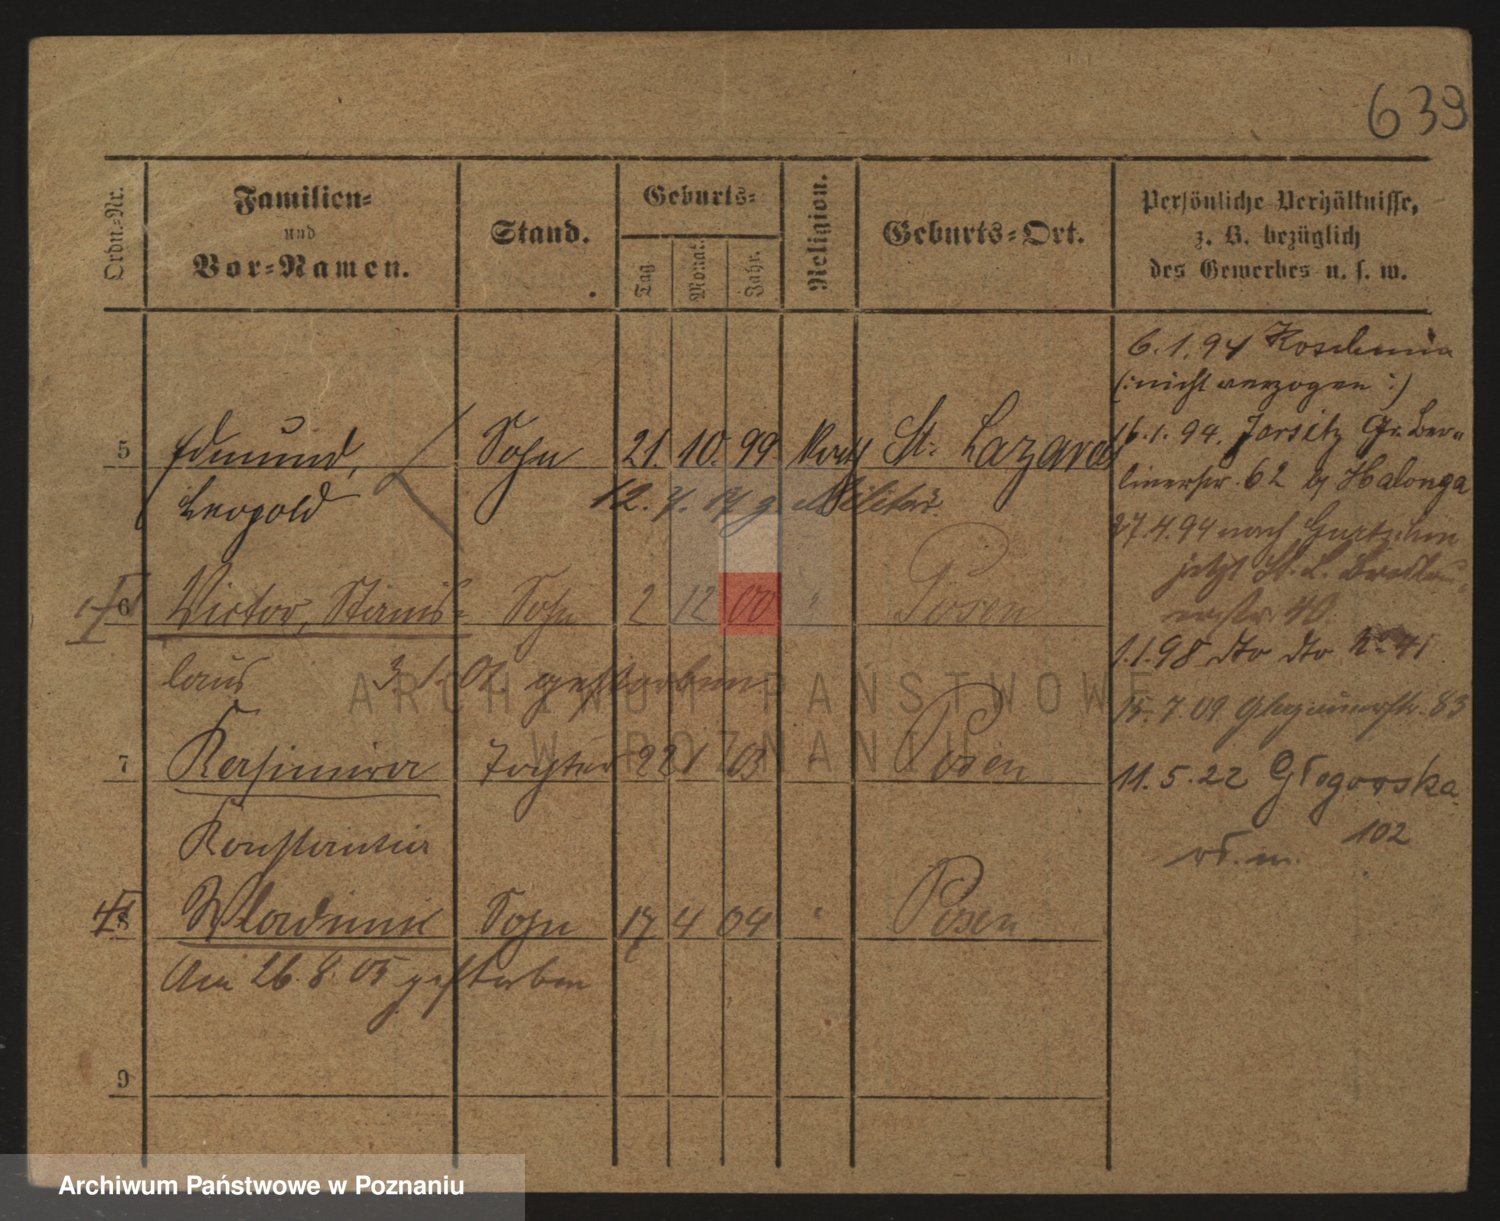 639
Ordn.-Nr.
Familien-
und
Vor-Namen.
Stand.
Geburts-
Tag.
Monat.
Jahr.
Religion.
Geburts-Ort.
Persönliche Verhältnisse,
z. B. bezüglich
des Gewerbes u. s. w.
6.1.94 Koschmin
(: nicht verzogen :)
5 Edmund, Sohn 21. 10. 99 kath St. Lazarus
Leopold 12. 7. 17 z. Militär
16.1.94. Jersitz Gr. Ber-
linerstr. 62 b/ Halonga
27.4.94 nach
jetzt St. L.
40.
6 Victor, Stanis- Sohn 2 12 00 " Posen
laus 3. 1. 01 gestorben
1.1.98 dto dto No 41
15.7.09 Glogauerstr. 83
7 Kasimira Tochter 22 1 03 Posen
Konstantia
11.5.22 Głogowska
102
8 Wladimir Sohn 17 4 04 " Posen
Am 26.8.05 gestorben
9
ARCHIWUM PAŃSTWOWE
W POZNANIU
Archiwum Państwowe w Poznaniu